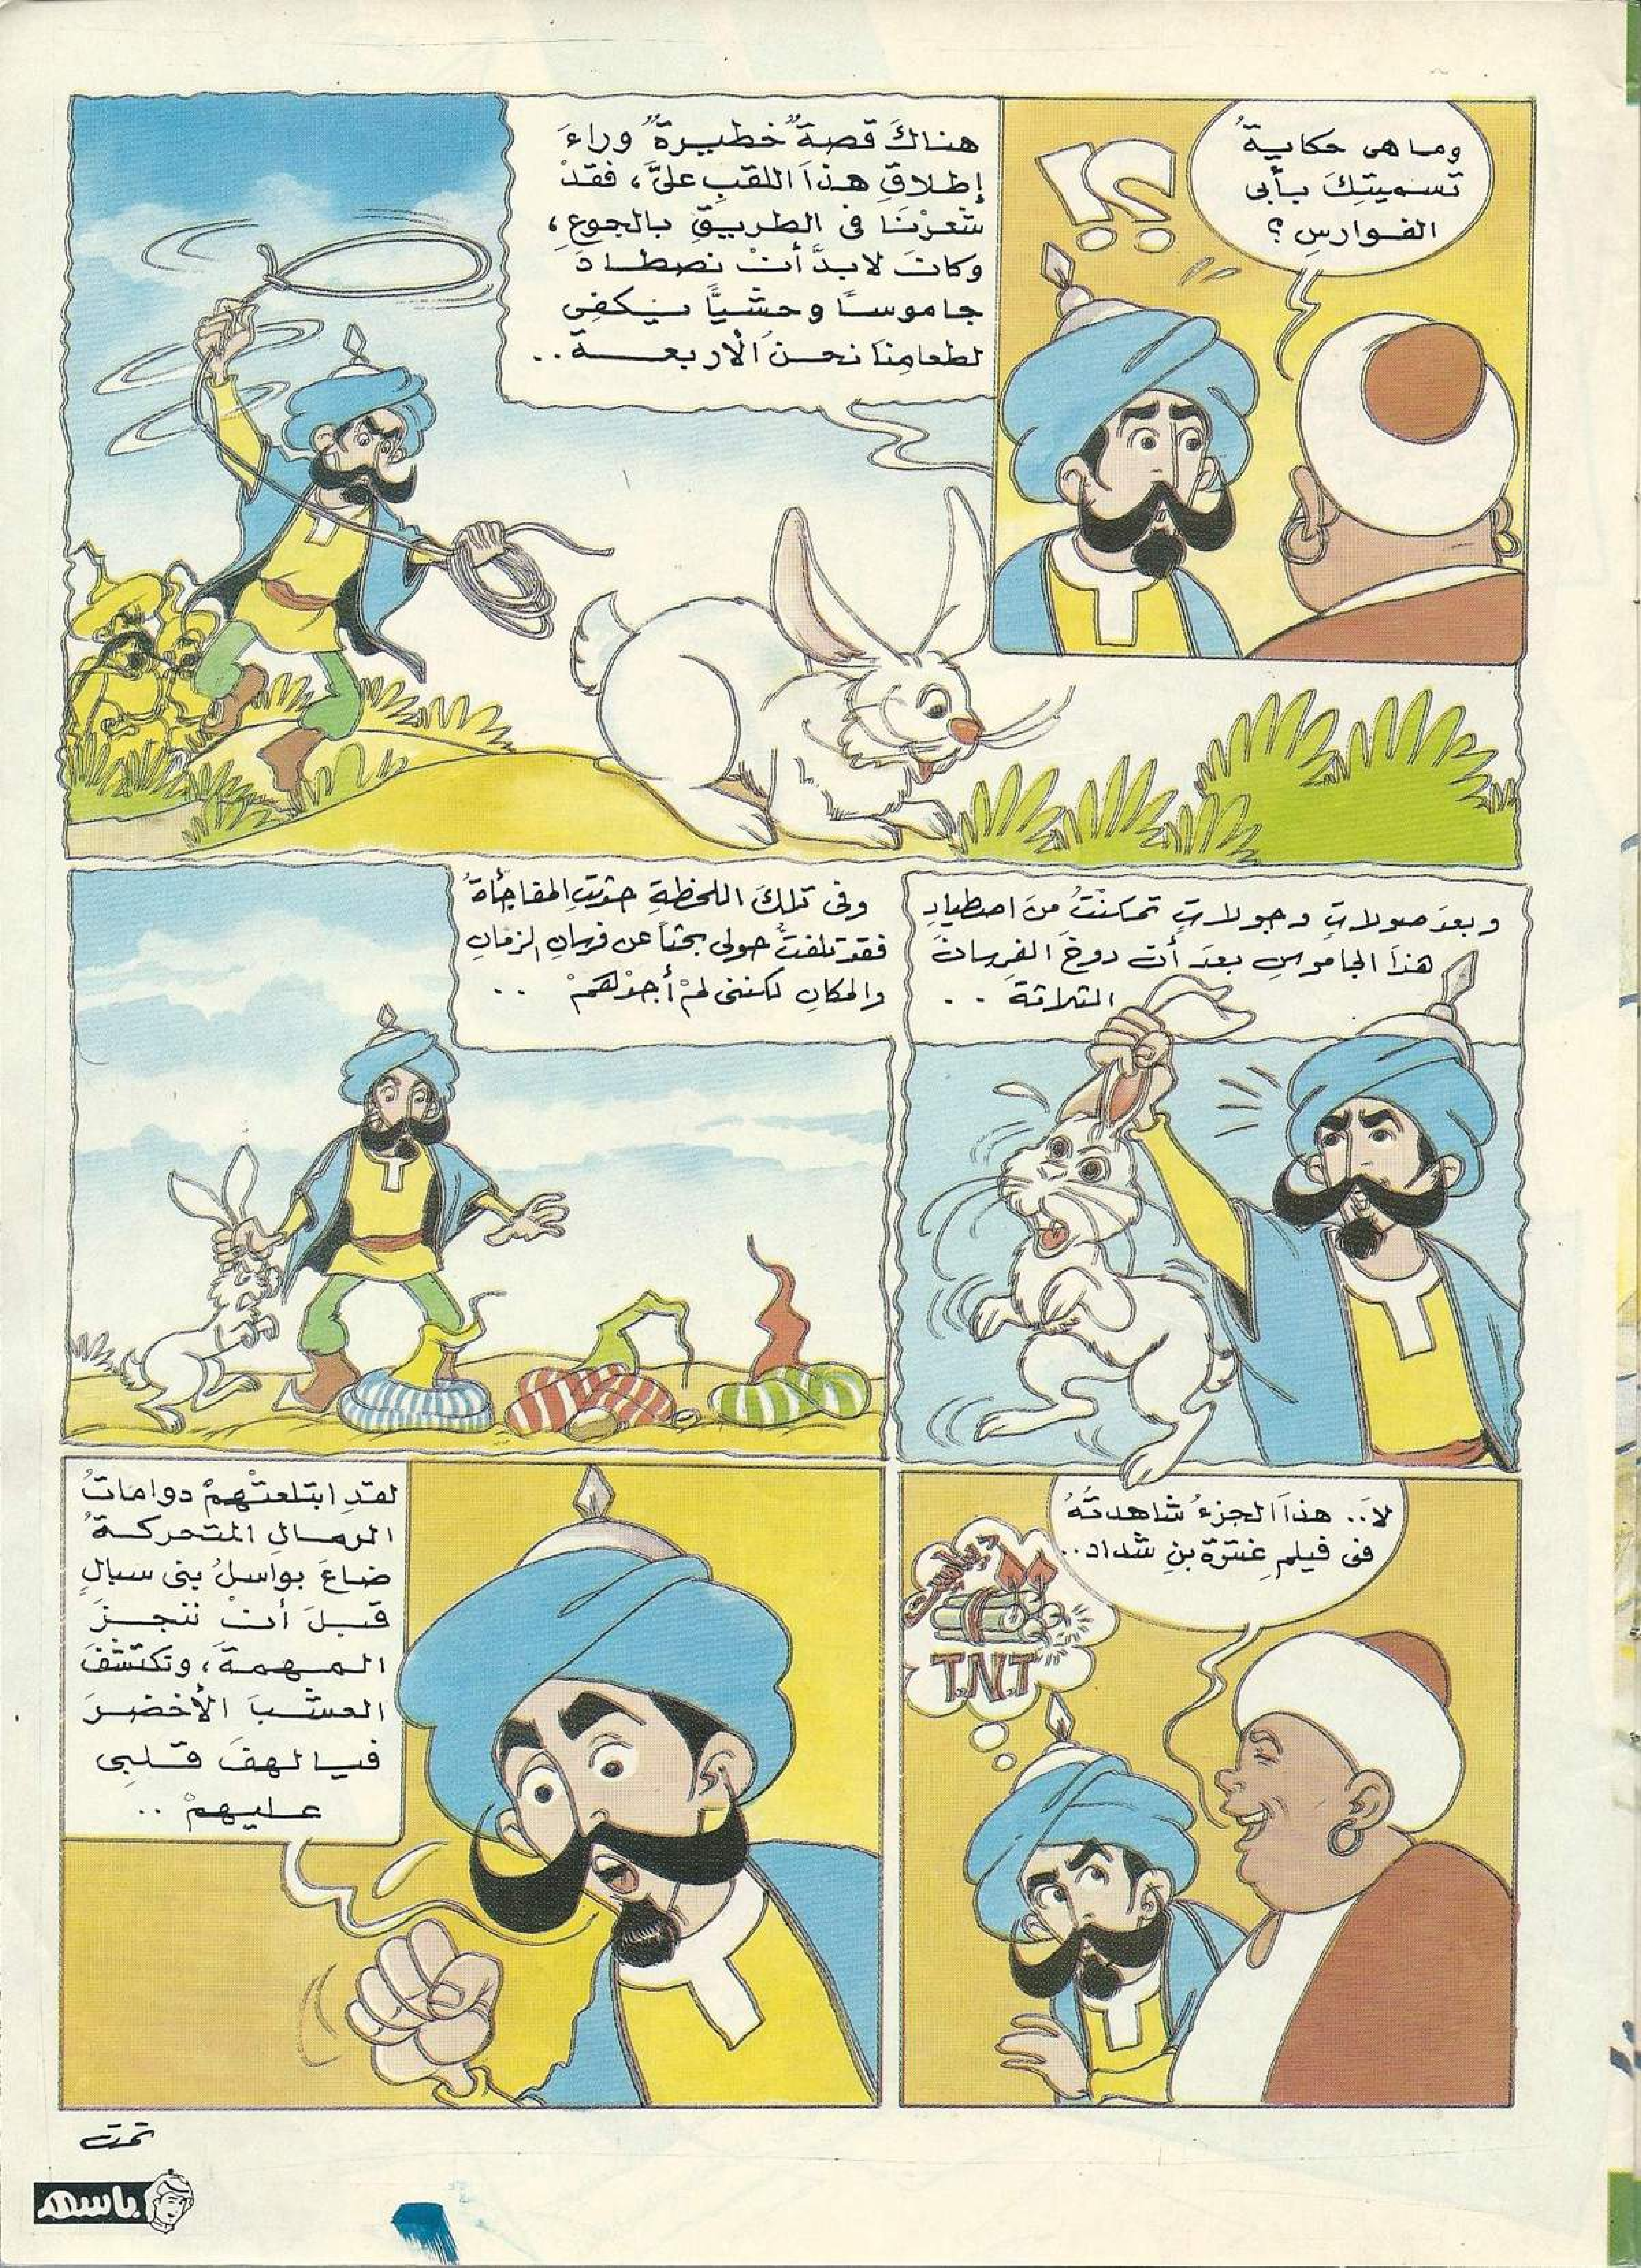 وما هى حكايةُ
تسميتِكَ بأبى
الفوارسِ ؟
؟!
هناكَ قصة "خطيرة" وراءَ
إطلاقِ هذا اللقبِ علىَّ، فقدْ
شعرْنَا فى الطريقِ بالجوعِ،
وكانَ لابدَّ أنْ نصطادَ
جاموسًا وحشيًّا يكفِى
لطعامِنا نحنُ الأربعـــة..
وبعدَ صولاتٍ وجولاتٍ تمكنْتُ منَ اصطيادِ
هذا الجاموسِ بعدَ أن دوخَ الفرسانَ
الثلاثةَ ..
وفى تلكَ اللحظةِ حدثتِ المفاجأةُ
فقد تلفتُّ حولى بحثاً عن فرسانِ الزمانِ
والمكانِ لكننى لمْ أجدْهمْ ..
لاَ.. هذا الجزءُ شاهدتُهُ
فى فيلمِ عنترة بنِ شداد..
ديناميت
T.N.T
لقدِ ابتلعتْهمْ دوامات
الرمالِ المتحركـةُ
ضاعَ بواسلُ بنى سبالٍ
قبلَ أنْ ننجزَ
المهمةَ، ونكتشفَ
العشبَ الأخضرَ
فيا لهفَ قلبِى
عليهمْ ..
تمت
باسم